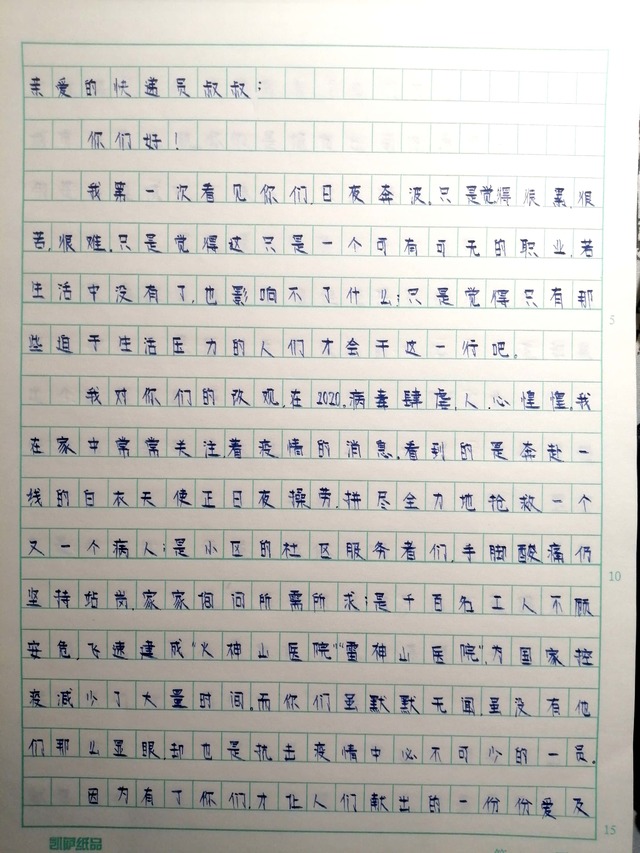 亲爱的快递员叔叔：
你们好！
我第一次看见你们，日夜奔波，只是觉得烦累，很
苦，很难，只是觉得这只是一个可有可无的职业，若
生活中没有了，也影响不了什么；只是觉得只有那
些迫于生活压力的人们才会干这一行吧。
我对你们的改观，在2020。病毒肆虐，人心惶惶。我
在家中常常关注着疫情的消息，看到的是奔赴一
线的白衣天使正日夜操劳，拼尽全力地抢救一个
又一个病人；是小区的社区服务者们，手脚酸痛仍
坚持站岗，家家闾问所需所求；是千百名工人不顾
安危，飞速建成“火神山医院”“雷神山医院”，为国家控
疫减少了大量时间。而你们虽默默无闻，虽没有他
们那么显眼，却也是抗击疫情中必不可少的一员。
因为有了你们，才让人们献出的一份份爱及
5
10
15
凯萨纸品